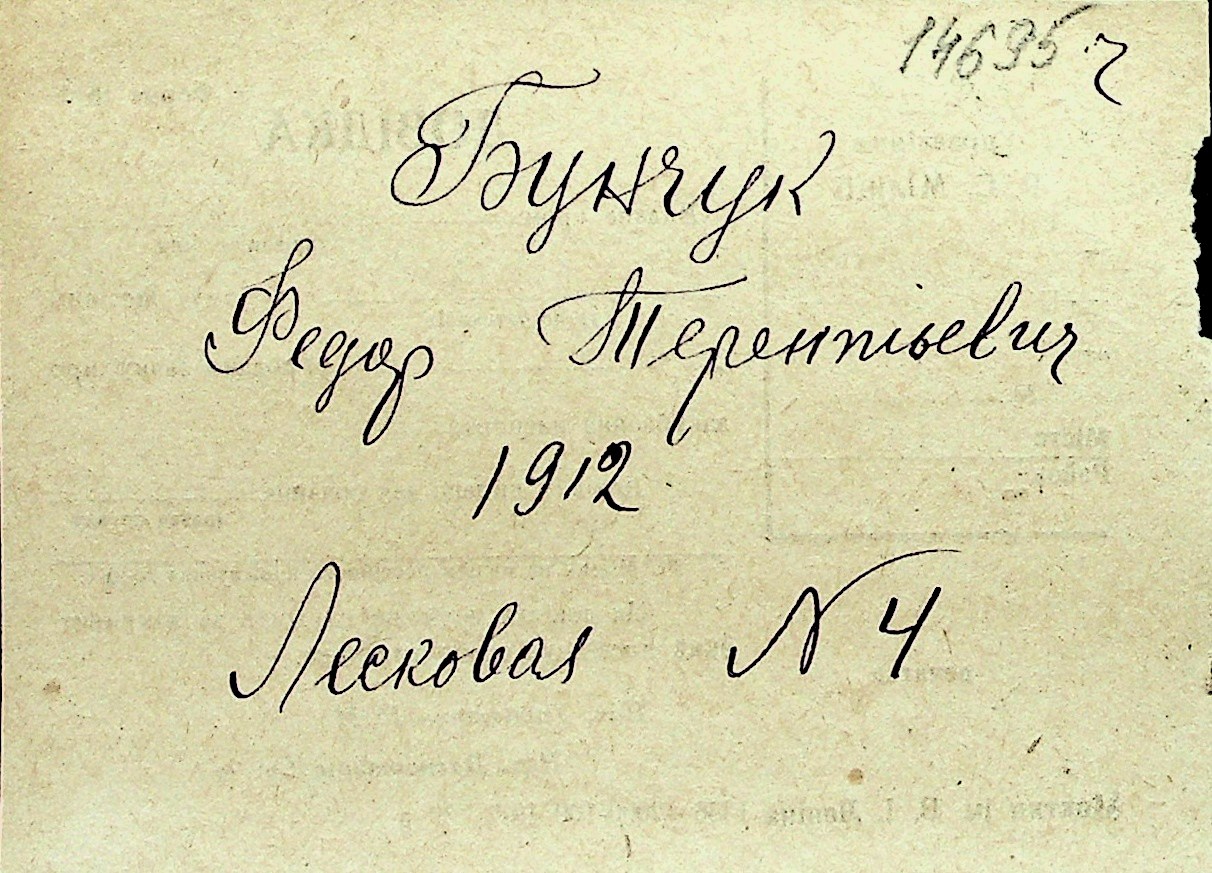 14695 ч
Бунчук
Федор Терентьевич
1912
Лесковая N 4